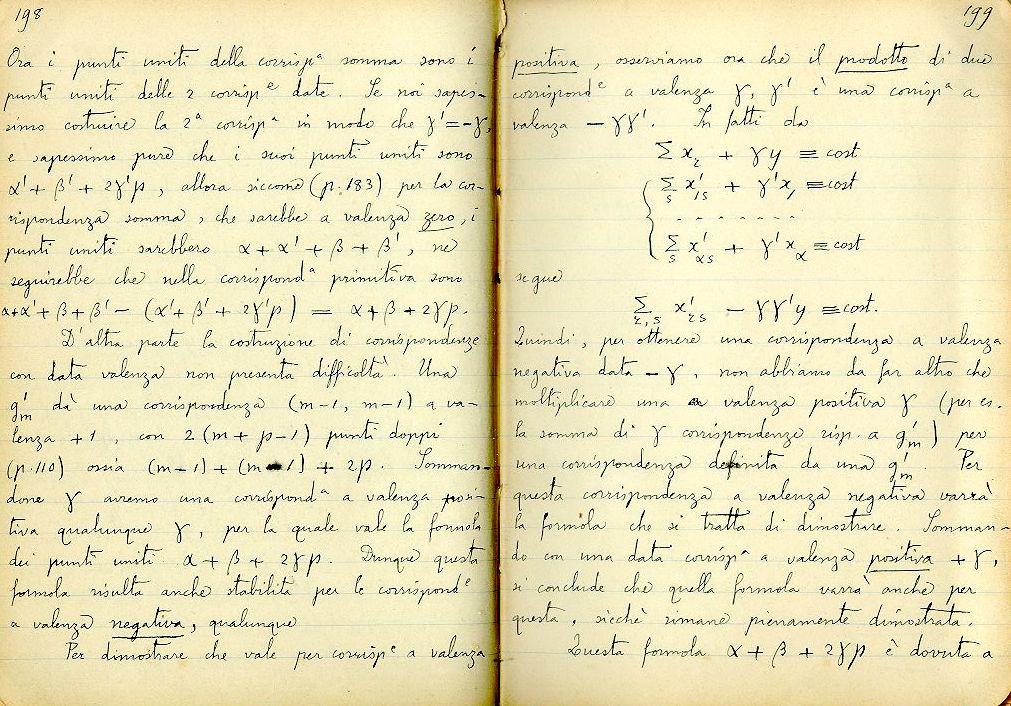 198
Ora i punti uniti della corrispª somma sono i
punti uniti delle 2 corrispᵉ date. Se noi sapes-
simo costruire la 2ª corrispª in modo che γ' = -γ,
e sapessimo pure che i suoi punti uniti sono
α' + β' + 2γ'p, allora siccome (p. 183) per la cor-
rispondenza somma, che sarebbe a valenza zero, i
punti uniti sarebbero α + α' + β + β', ne
seguirebbe che nella corrispondª primitiva sono
α+α' + β + β' - (α' + β' + 2γ'p) = α + β + 2γp.
D'altra parte la costruzione di corrispondenze
con data valenza non presenta difficoltà. Una
g'm dà una corrispondenza (m-1, m-1) a va-
lenza +1, con 2(m + p - 1) punti doppi
(p. 110) ossia (m-1) + (m-1) + 2p. Somman-
done γ avremo una corrispondª a valenza posi-
tiva qualunque γ, per la quale vale la formola
dei punti uniti α + β + 2γp. Dunque questa
formola risulta anche stabilita per le corrispondᵉ
a valenza negativa, qualunque
Per dimostrare che vale per corrispᵉ a valenza
199
positiva, osserviamo ora che il prodotto di due
corrispondᵉ a valenza γ, γ' è una corrispª a
valenza - γγ'. In fatti da
Σ xr + γy ≡ cost
Σs x'1s + γ'x1 ≡ cost
- - - - - - -
Σs x'αs + γ'xα ≡ cost
segue
Σr,s x'rs - γγ'y ≡ cost.
Quindi, per ottenere una corrispondenza a valenza
negativa data -γ, non abbiamo da far altro che
moltiplicare una a valenza positiva γ (per es.
la somma di γ corrispondenze risp. a g'm) per
una corrispondenza definita da una g'm. Per
questa corrispondenza a valenza negativa varrà
la formola che si tratta di dimostrare. Somman-
do con una data corrispª a valenza positiva +γ,
si conclude che quella formola varrà anche per
questa, sicchè rimane pienamente dimostrata.
Questa formola α + β + 2γp è dovuta a